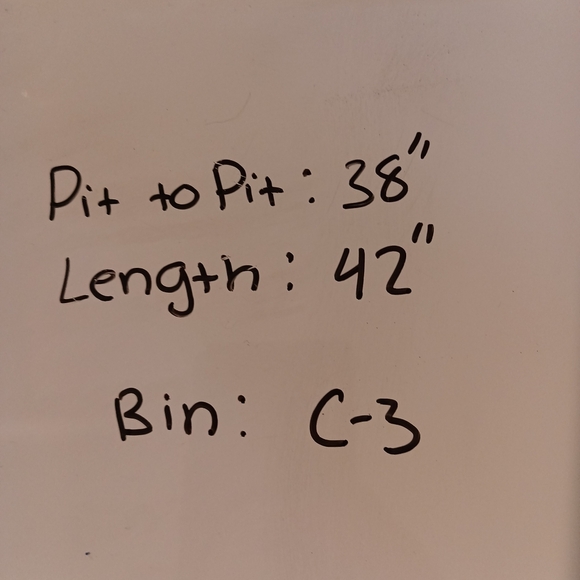 Pit to Pit: 38"
Length: 42"
Bin: C-3